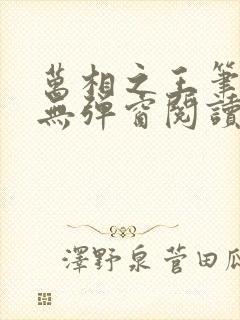 萬相之王筆
無彈窗閱讀
澤野泉菅田瓜